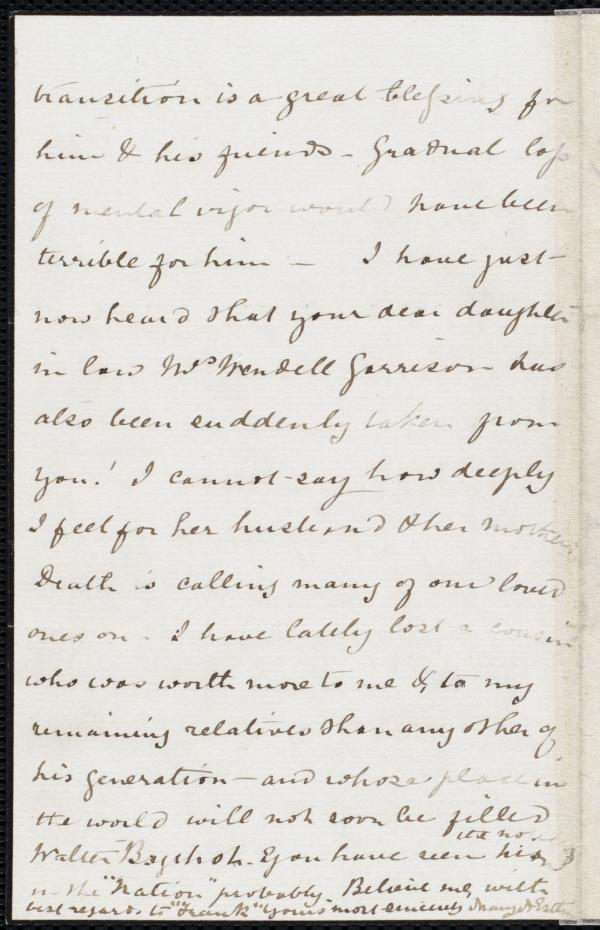 transition is a great blessing for
him & his friends - Gradual loss
of mental vigor would have been
terrible for him — I have just
now heard that your dear daughter
in law Mrs Wendell Garrison has
also been suddenly taken from
you! I cannot say how deeply
I feel for her husband & her mother
Death is calling many of our loved
ones on - I have lately lost a cousin
who was worth more to me & to my
remaining relatives than any other of
his generation - and whose place in
the world will not soon be filled
Walter Bagehot - you have seen his
in the "Nation" probably. Believe me, with
best regards to "Frank" yours most sincerely Mary A Estlin